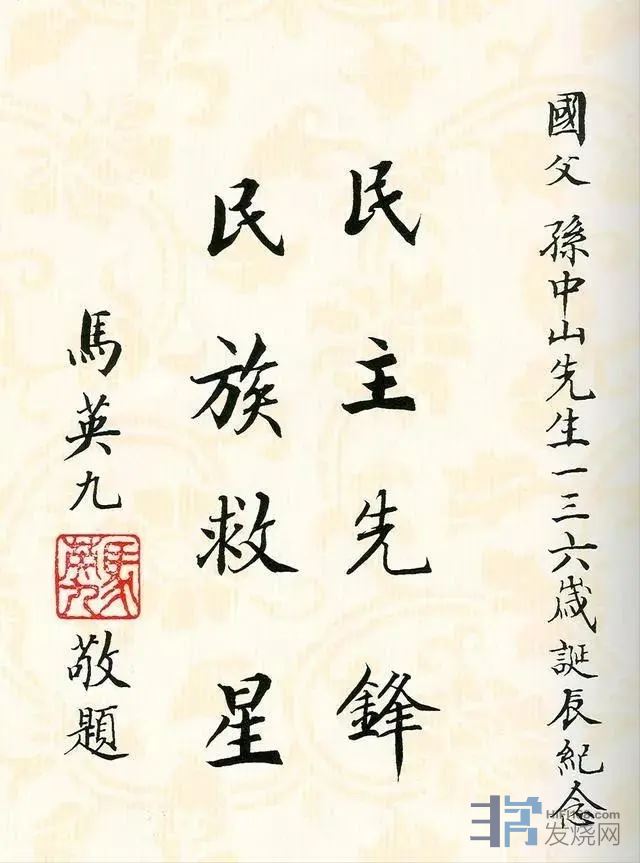 國父 孫中山先生一三六歲誕辰紀念
民主先鋒
民族救星
馬英九
馬英九
敬題
HIFI168.com
发烧网